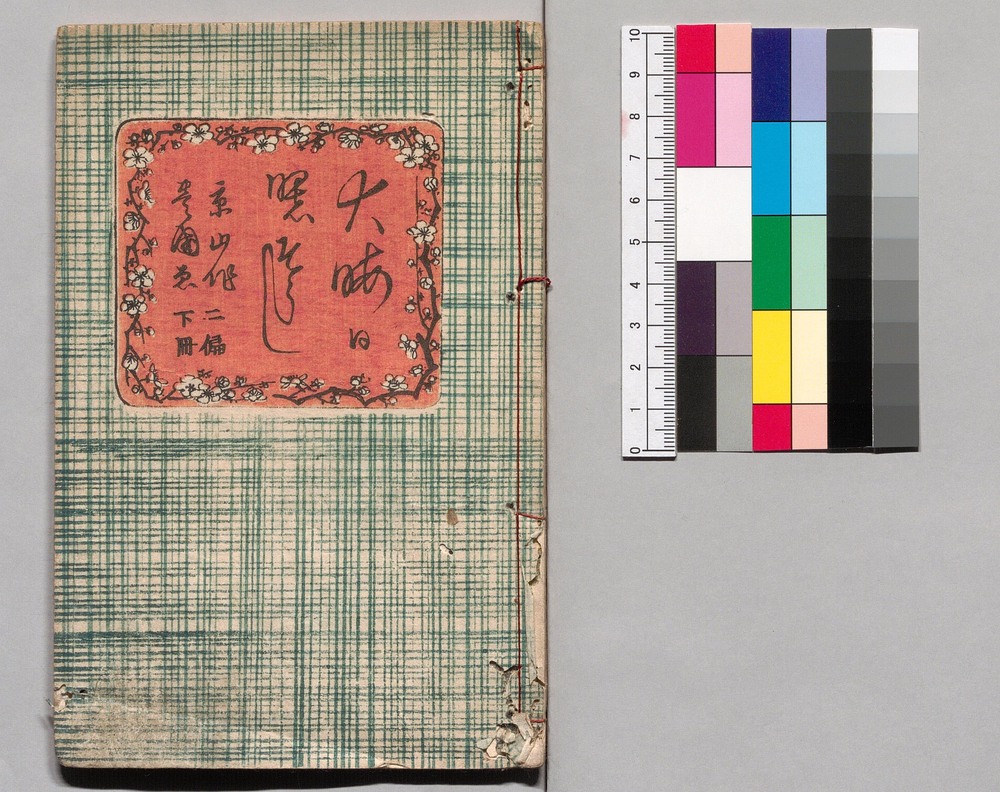 大晦日
曙草紙
京山作 二偏
豊國ゑ 下冊
10
9
8
7
6
5
4
3
2
1
0